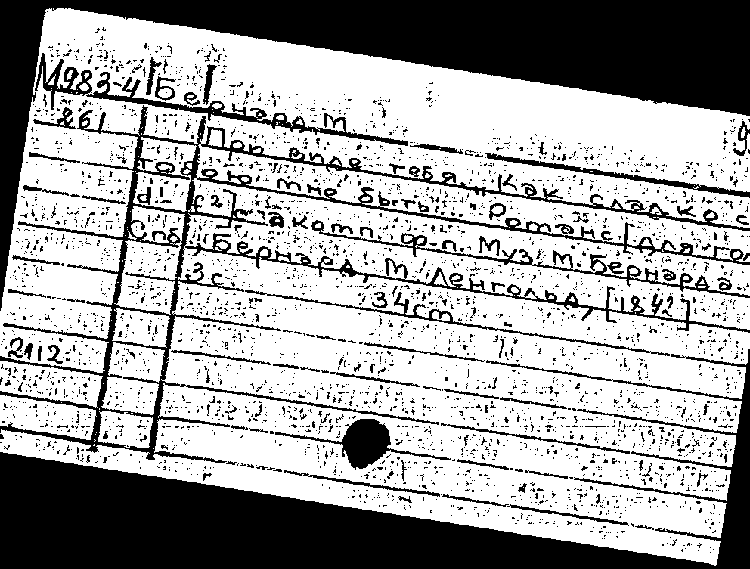 М983-4 Бернард М 9
261 При виде тебя... Как сладко с
тобою мне быть... Романс [для гол
d¹- f²] с аккомп. ф-п. Муз. М. Бернарда.
Спб., Бернард, М. Ленгольд, [1842]
3 с. 34 cm
2112